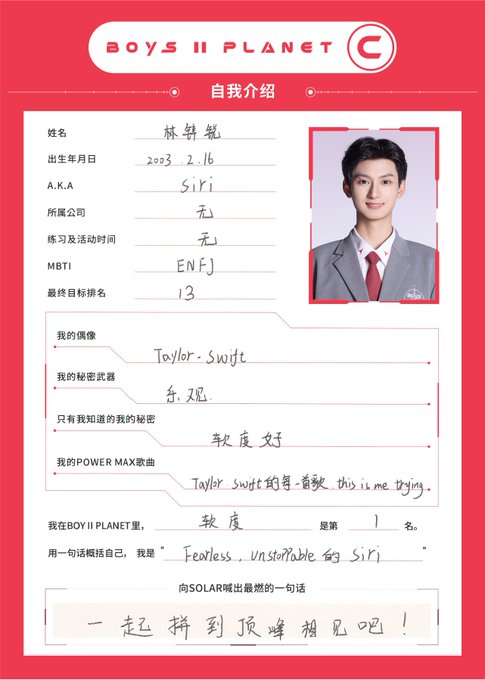 BOYS II PLANET C
自我介绍
姓名 林铸锐
出生年月日 2003.2.16
A.K.A Siri
所属公司 无
练习及活动时间 无
MBTI ENFJ
最终目标排名 13
BOYS
我的偶像
Taylor·Swift
我的秘密武器
乐观.
只有我知道的我的秘密
软度好
我的POWER MAX歌曲
Taylor Swift的每一首歌 this is me trying
我在BOY II PLANET里， 软度 是第 1 名。
用一句话概括自己， 我是“ Fearless, unstoppable 的 Siri ”
向SOLAR喊出最燃的一句话
一起拼到顶峰相见吧！